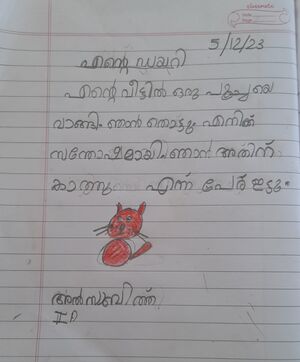 classmate
Date
Page
5/12/23
എന്റെ ഡയറി
എന്റെ വീട്ടിൽ ഒരു പൂച്ചയെ
വാങ്ങി. ഞാൻ തൊട്ടു. എനിക്ക്
സന്തോഷമായി. ഞാൻ അതിന്
കാത്തു എന്ന് പേര് ഇട്ടു.
അൽസബിത്ത്
II A